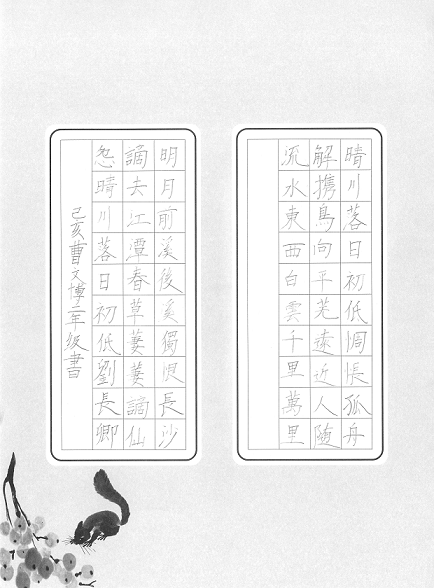 晴川落日初低惆悵孤舟
解攜鳥向平蕪遠近人隨
流水東西白雲千里萬里
明月前溪後溪獨恨長沙
謫去江潭春草萋萋謫仙
怨晴川落日初低劉長卿
己亥曹文博二年级書